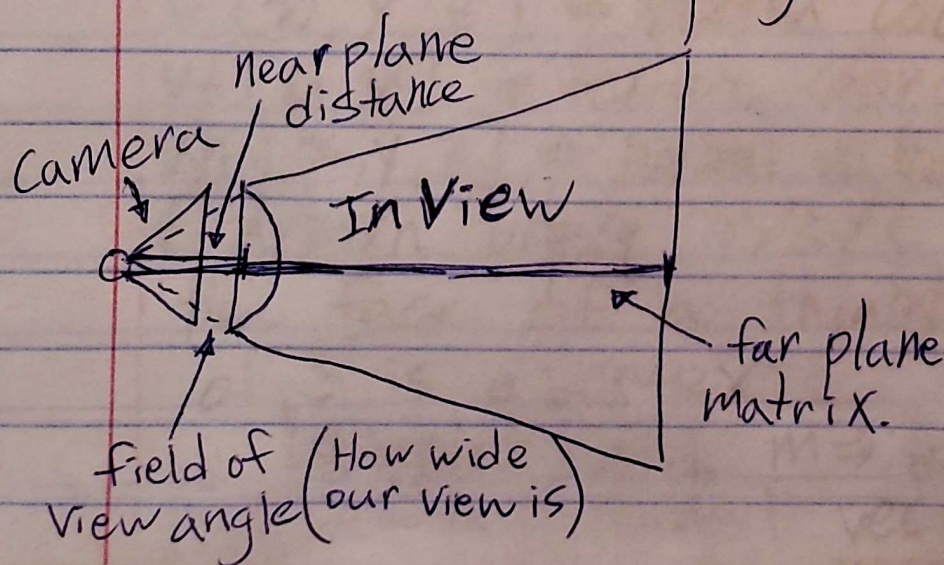 near plane
distance
Camera
In View
far plane
matrix.
field of (How wide
view angle our view is)